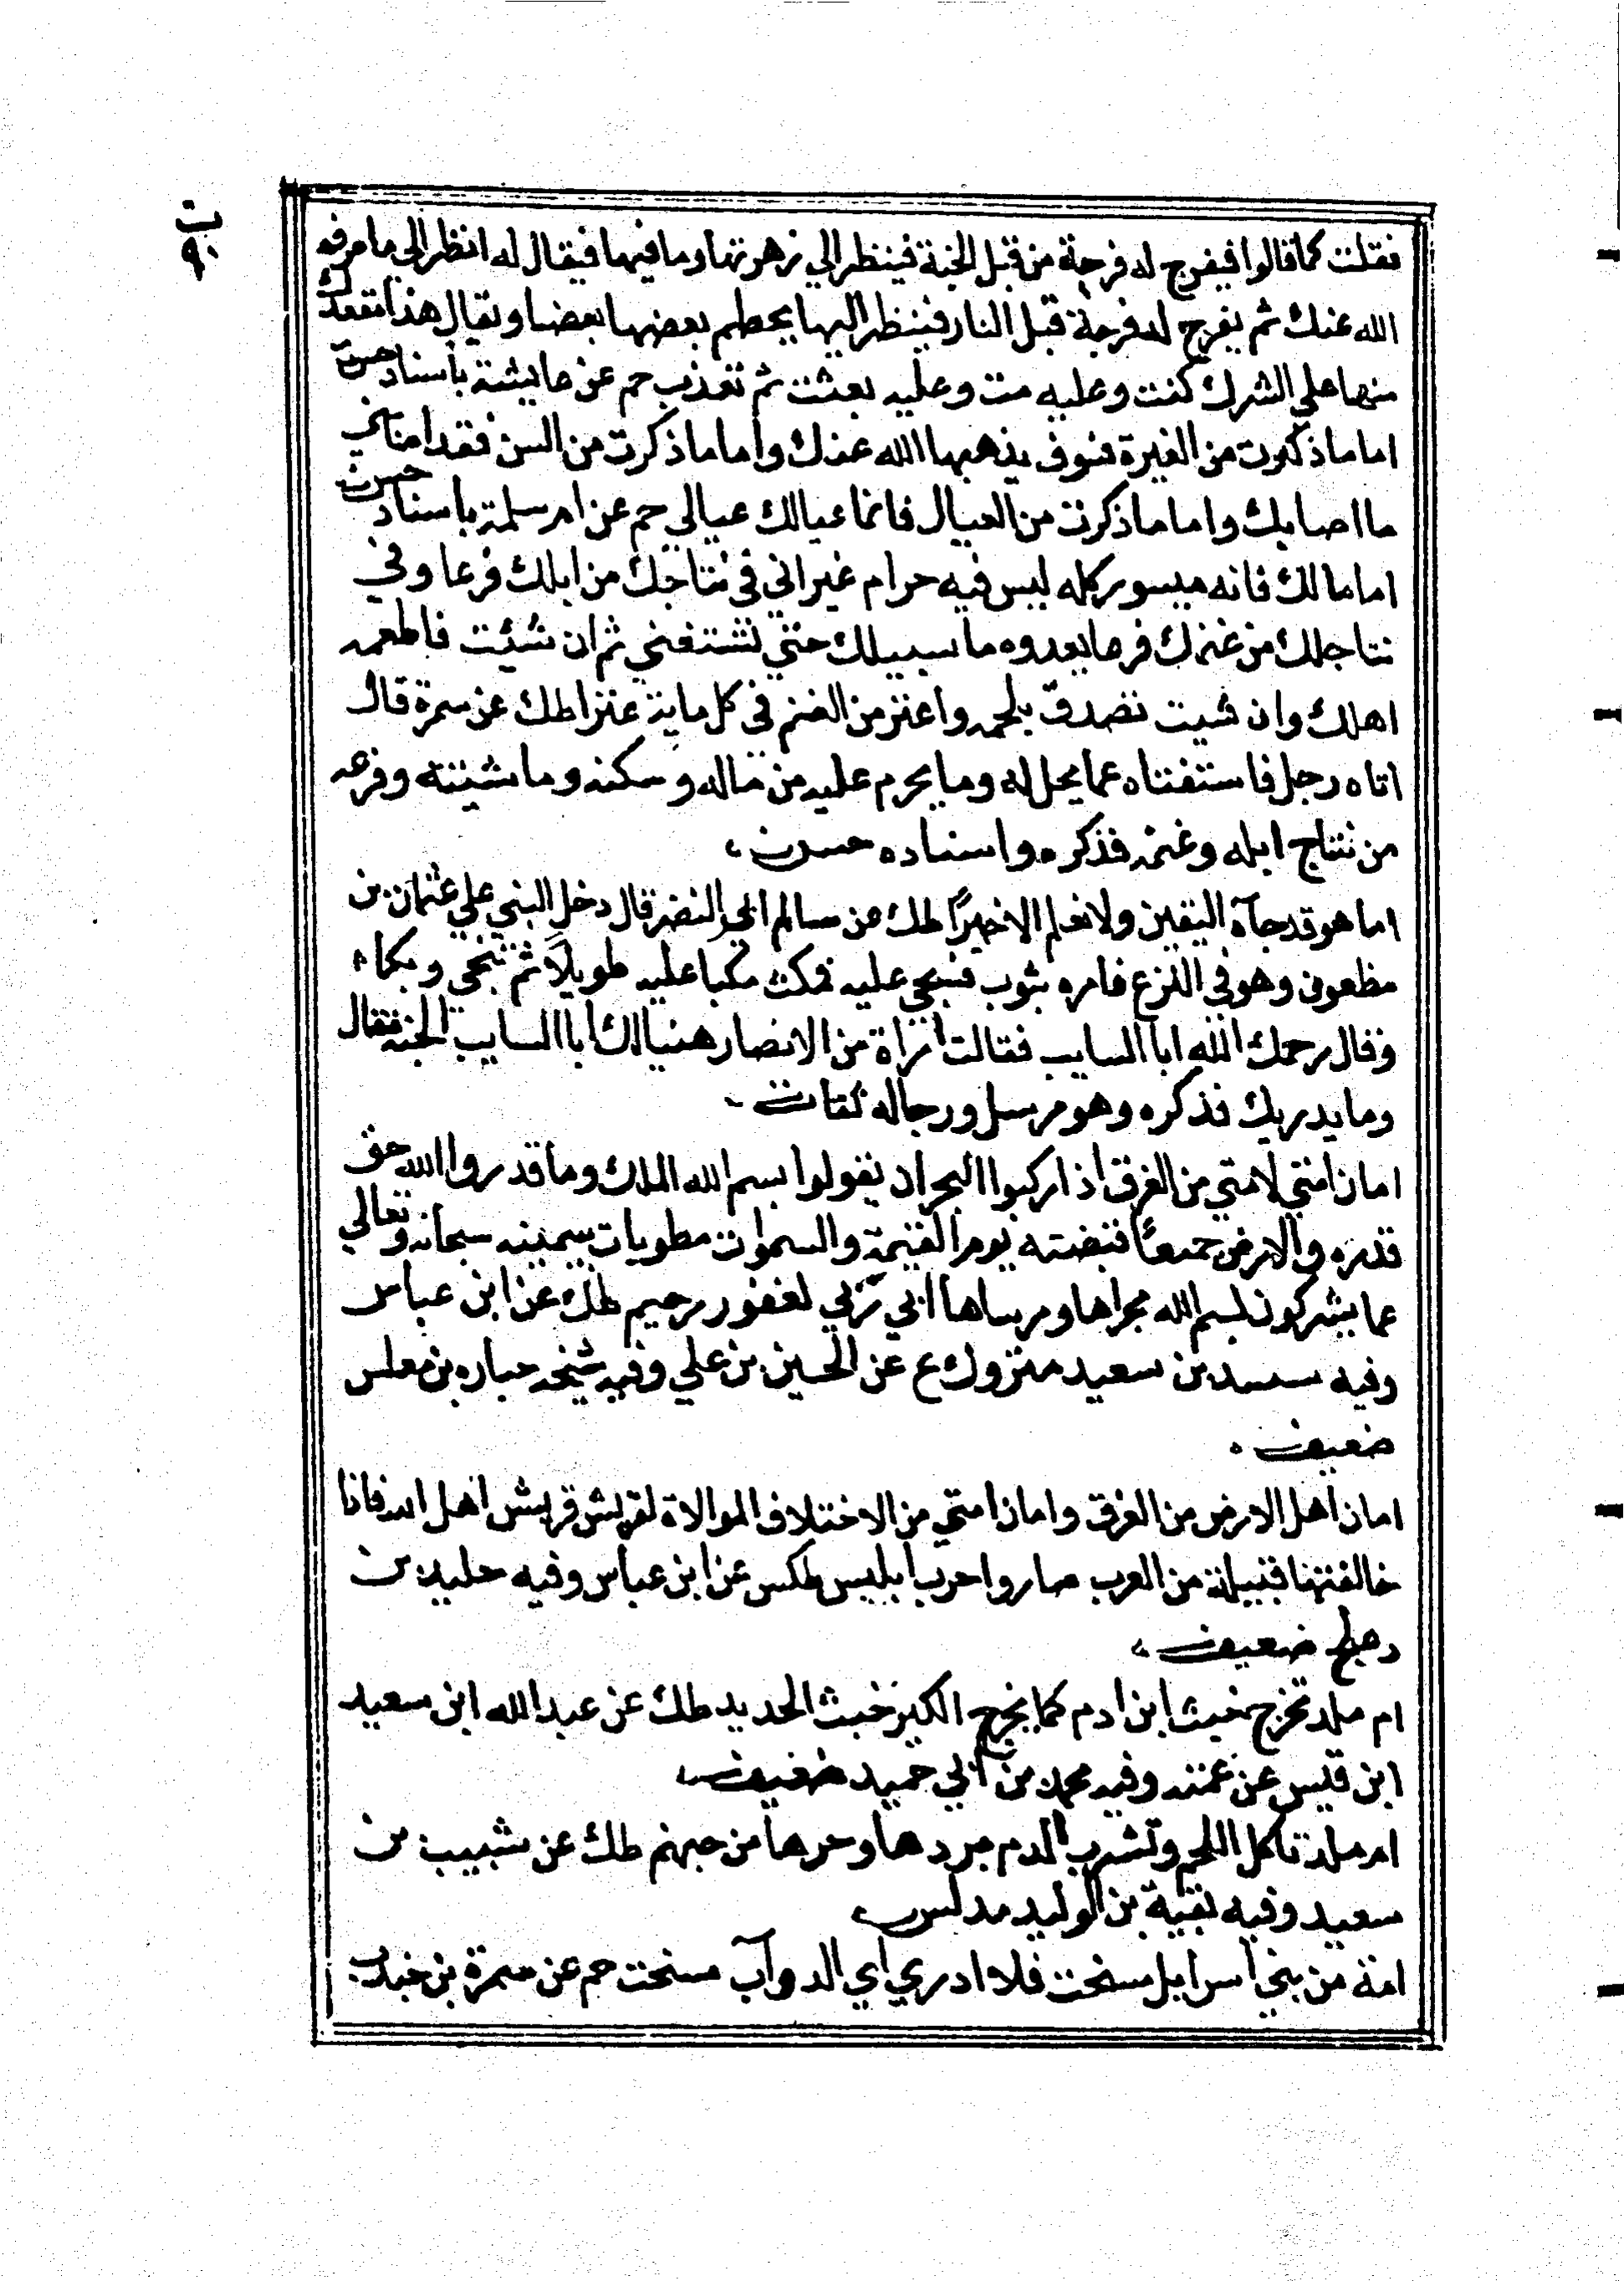 ب
٩٠
فقلت كما قالوا فيفرج له فرجة من قبل الجنة فينظر الي زهرتها وما فيها فيقال له انظر الي ما صرفه
الله عنك ثم يفرج له فرجة قبل النار فينظر اليها يحطم بعضها بعضا ويقال هذا مقعدك
منها علي الشرك كنت وعليه مت وعليه بعثت ثم تعذب حم عن عايشة باسناد حسن
اما ما ذكرت من الغيرة فسوف يذهبها الله عنك واما ما ذكرت من السن فقد اصابني
ما اصابك واما ما ذكرت من العيال فانما عيالك عيالي حم عن ام سلمة باسناد حسن
اما مالك فانه ميسور كله ليس فيه حرام غير اني في نتاجك من ابلك فرعا وفي
نتاجك من غنمك فرعا يعدوه ما سبيلك حتي تستغني ثم ان شئت فاطعمه
اهلك وان شيت تصدق بلحمه واعنز من الغنم في كل ماية عنزا طك عن سمرة قال
اتاه رجل فاستفتاه عما يحل له وما يحرم عليه من ماله وسكنه وماشيته وفرعه
من نتاج ابله وغنمه فذكره واسناده حسن
اما هو قد جآه اليقين ولا نعلم الا خيرًا طك عن سالم ابي النضر قال دخل النبي علي عثمان بن
مظعون وهو في النزع فامره بثوب فسجي عليه فمكث مكبا عليه طويلاً ثم تنحي وبكاء
وقال رحمك الله ابا السايب فقالت امراة من الانصار هنيا لك ابا السايب الجنة فقال
وما يدريك فذكره وهو مرسل ورجاله ثقات
امان امتي لامتي من الغرق اذا ركبوا البحر ان يقولوا بسم الله الملك وما قدروا الله حق
قدره والارض جميعًا قبضته يوم القيمة والسموات مطويات بيمينه سبحانه وتعالي
عما يشركون بسم الله مجراها ومرساها ان ربي لغفور رحيم طك عن ابن عباس
وفيه سعيد بن سعيد متروك ع عن الحسين بن علي وفيه شيخه جباره بن مغلس
ضعيف
امان اهل الارض من الغرق وامان امتي من الاختلاف الموالاة لقريش قريش اهل الله فاذا
خالفتها قبيلة من العرب صاروا حرب ابليس طكس عن ابن عباس وفيه خليد بن
دعلج ضعيف
ام ملدم تخرج خبث ابن ادم كما يخرج الكير خبث الحديد طك عن عبد الله ابن سعيد
ابن قيس عن عمته وفيه محمد بن ابي حميد ضعيف
ام ملدم تاكل اللحم وتشرب الدم بردها وحرها من جهنم طك عن شبيب بن
سعيد وفيه بقية بن الوليد مدلس
امة من بني اسرايل مسخت فلا ادري اي الدوآب مسخت حم عن سمرة بن جندب